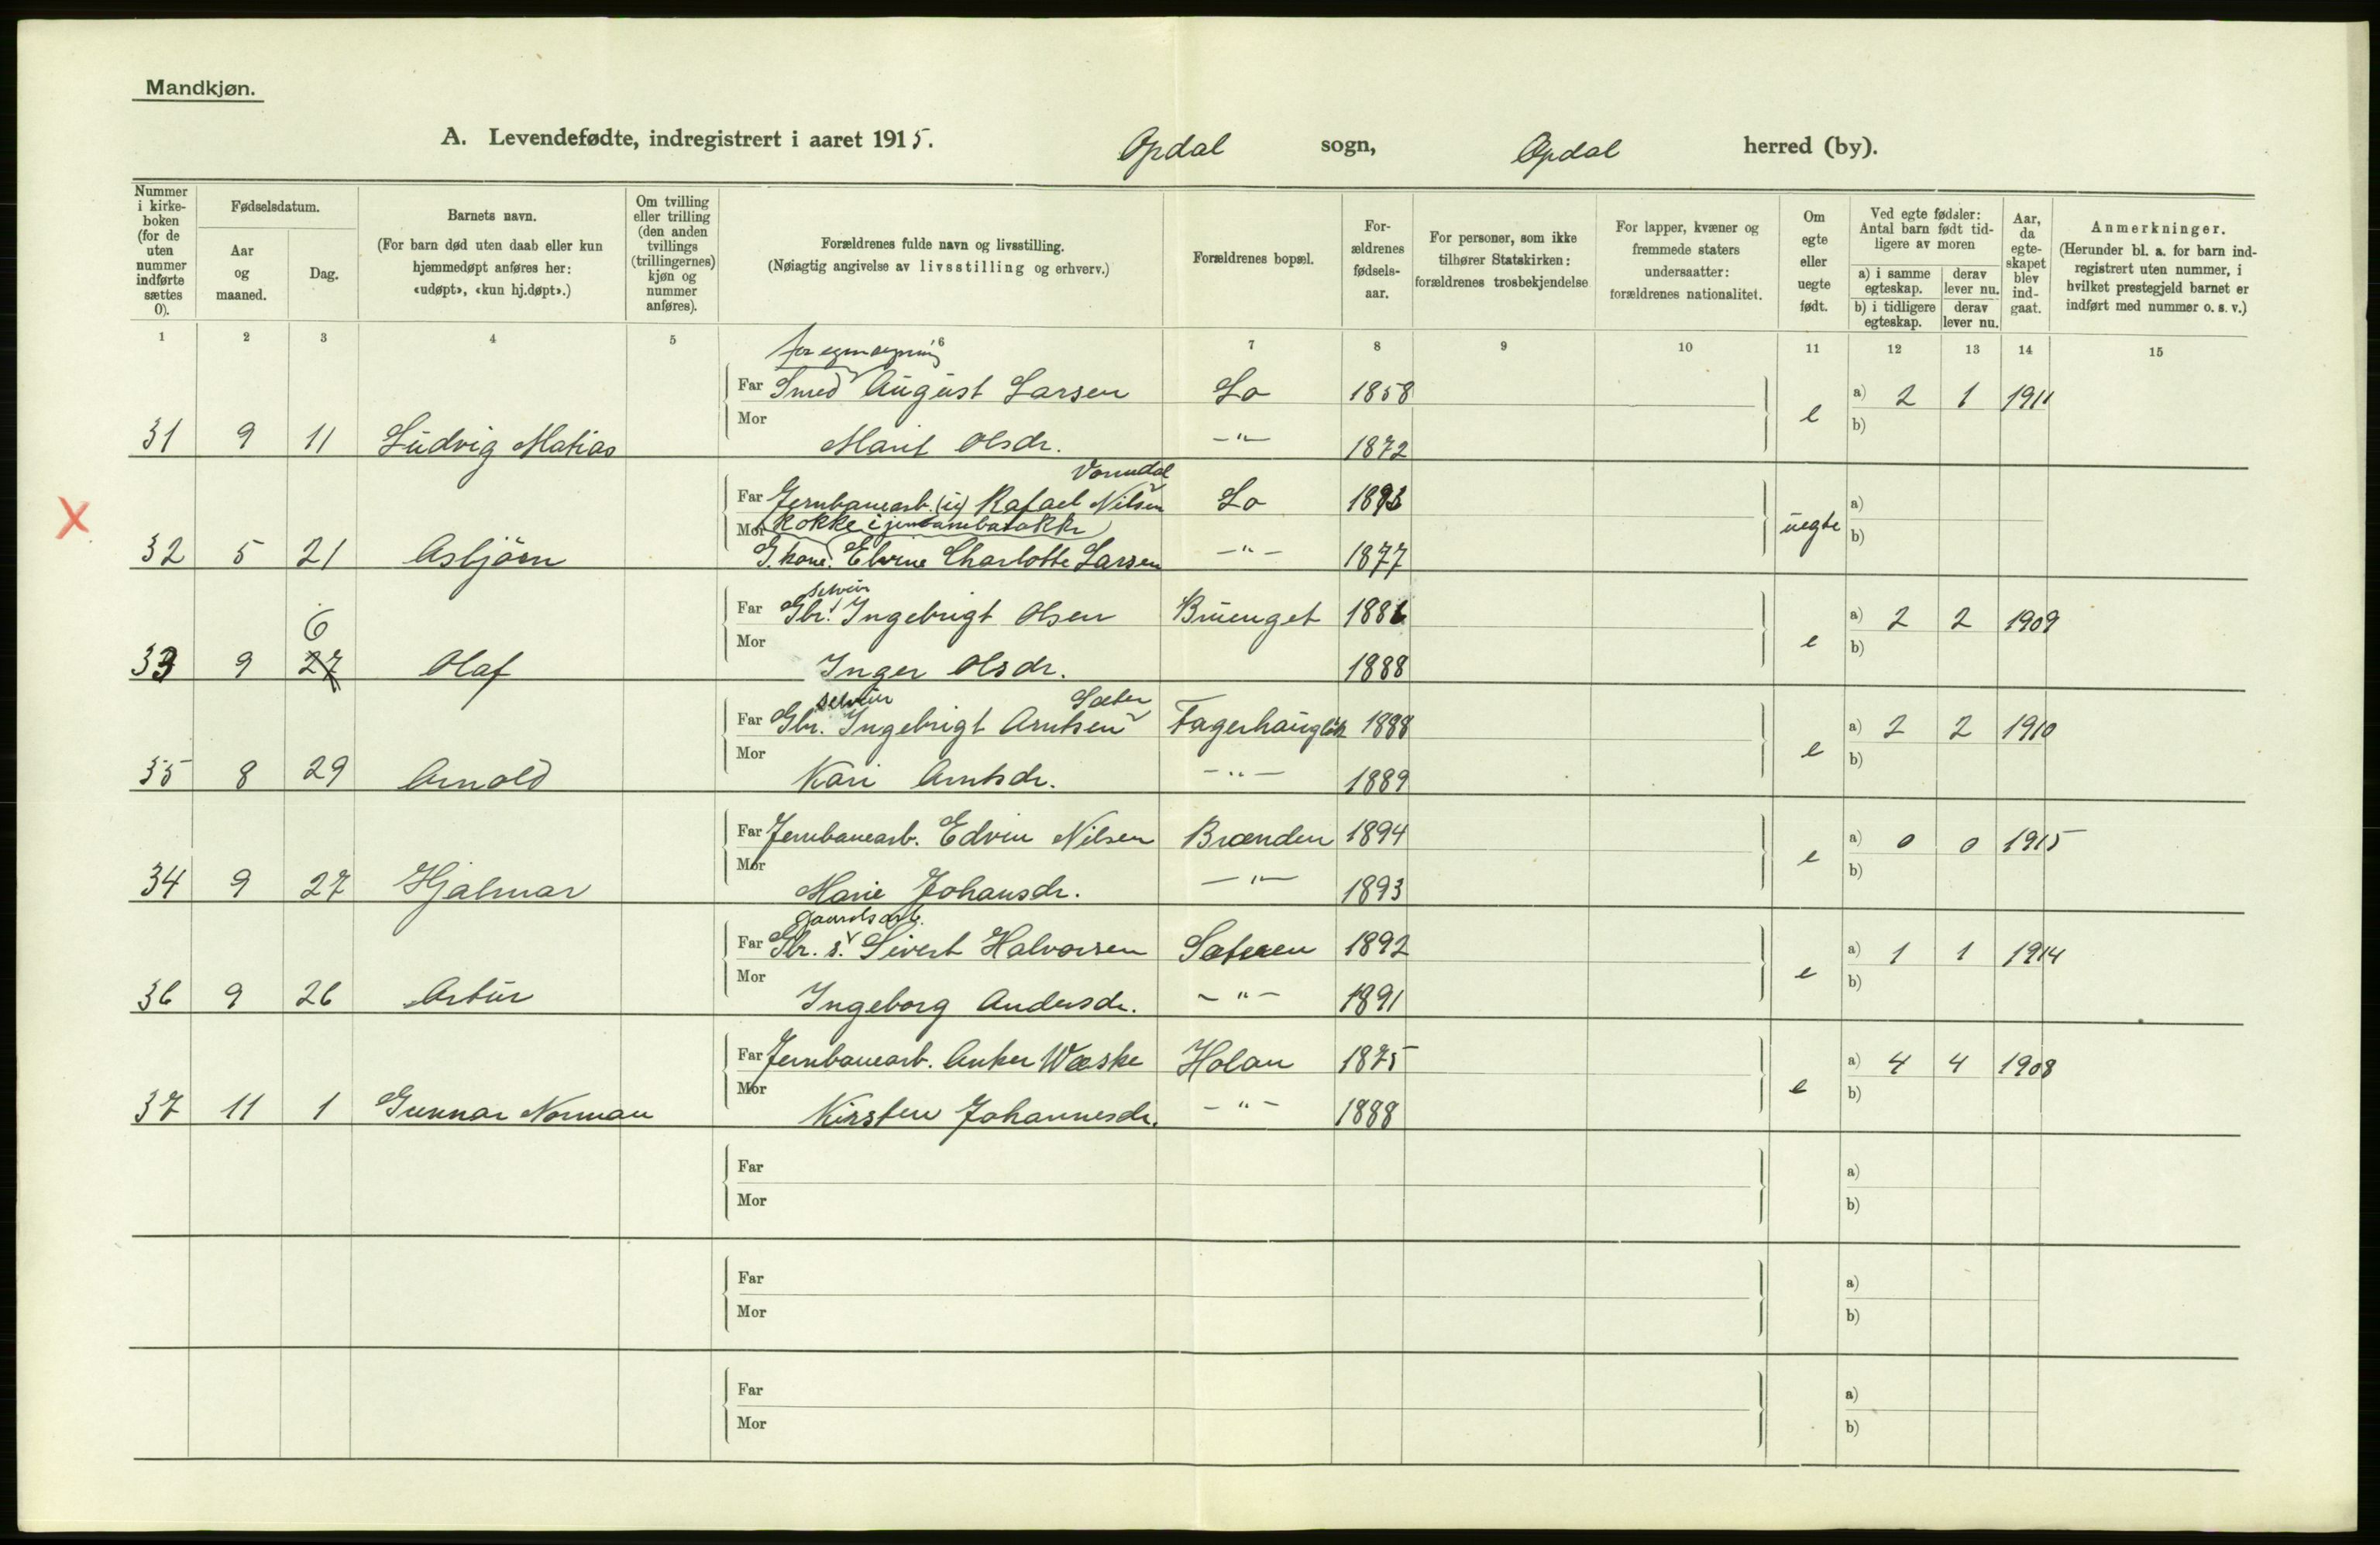 Mandkjøn.
A. Levendefødte, indregistrert i aaret 1915. Opdal sogn, Opdal herred (by).
Nummer i kirke-boken (for de uten nummer indførte sættes 0).
Fødselsdatum.
Aar og maaned.
Dag.
Barnets navn.
(For barn død uten daab eller kun hjemmedøpt anføres her: «udøpt», «kun hj.døpt».)
Om tvilling eller trilling (den anden tvillings (trillingernes) kjøn og nummer anføres).
Forældrenes fulde navn og livsstilling.
(Nøiagtig angivelse av livsstilling og erhverv.)
Forældrenes bopæl.
For-ældrenes fødsels-aar.
For personer, som ikke tilhører Statskirken: forældrenes trosbekjendelse
For lapper, kvæner og fremmede staters undersaatter: forældrenes nationalitet.
Om egte eller uegte født.
Ved egte fødsler: Antal barn født tid-ligere av moren
a) i samme egteskap. derav lever nu.
b) i tidligere egteskap. derav lever nu.
Aar, da egte-skapet blev ind-gaat.
Anmerkninger.
(Herunder bl. a. for barn ind-registrert uten nummer, i hvilket prestegjeld barnet er indført med nummer o. s. v.)
1 2 3 4 5 6 7 8 9 10 11 12 13 14 15
for egen regning
Far Smed August Larsen Lo 1858 a) 2 1 1911
31 9 11 Ludvig Matias Mor Marit Olsdr. -"- 1872 e b)
Vonudal
X Far Jernbanearb. (u) Rafael Nilsen Lo a)
Kokke i
32 5 21 Asbjörn Mor G. kone. Elvine Charlotte Larsen -"- 1877 uegte b)
selveier
Far Gbr. Ingebrigt Olsen Bruenget 1886 a) 2 2 1909
6
33 9 27 Olaf Mor Inger Olsdr. 1888 e b)
selveier Sæter
Far Gbr. Ingebrigt Arntsen 1888 a) 2 2 1910
35 8 29 Arnold Mor Kari Arntsdr. -"- 1889 e b)
Far Jernbanearb. Edvin Nilsen Brænden 1894 a) 0 0 1915
34 9 27 Hjalmar Mor Marie Johansdr. -"- 1893 e b)
gaardsarb.
Far Gbr. s. Sivert Halvorsen Sæteren 1892 a) 1 1 1914
36 9 26 Artur Mor Ingeborg Andersdr. -"- 1891 e b)
Far Jernbanearb. Anker Wæske Holan 1875 a) 4 4 1908
37 11 1 Gunnar Norman Mor Kirsten Johannesdr. -"- 1888 e b)
Far a)
Mor b)
Far a)
Mor b)
Far a)
Mor b)